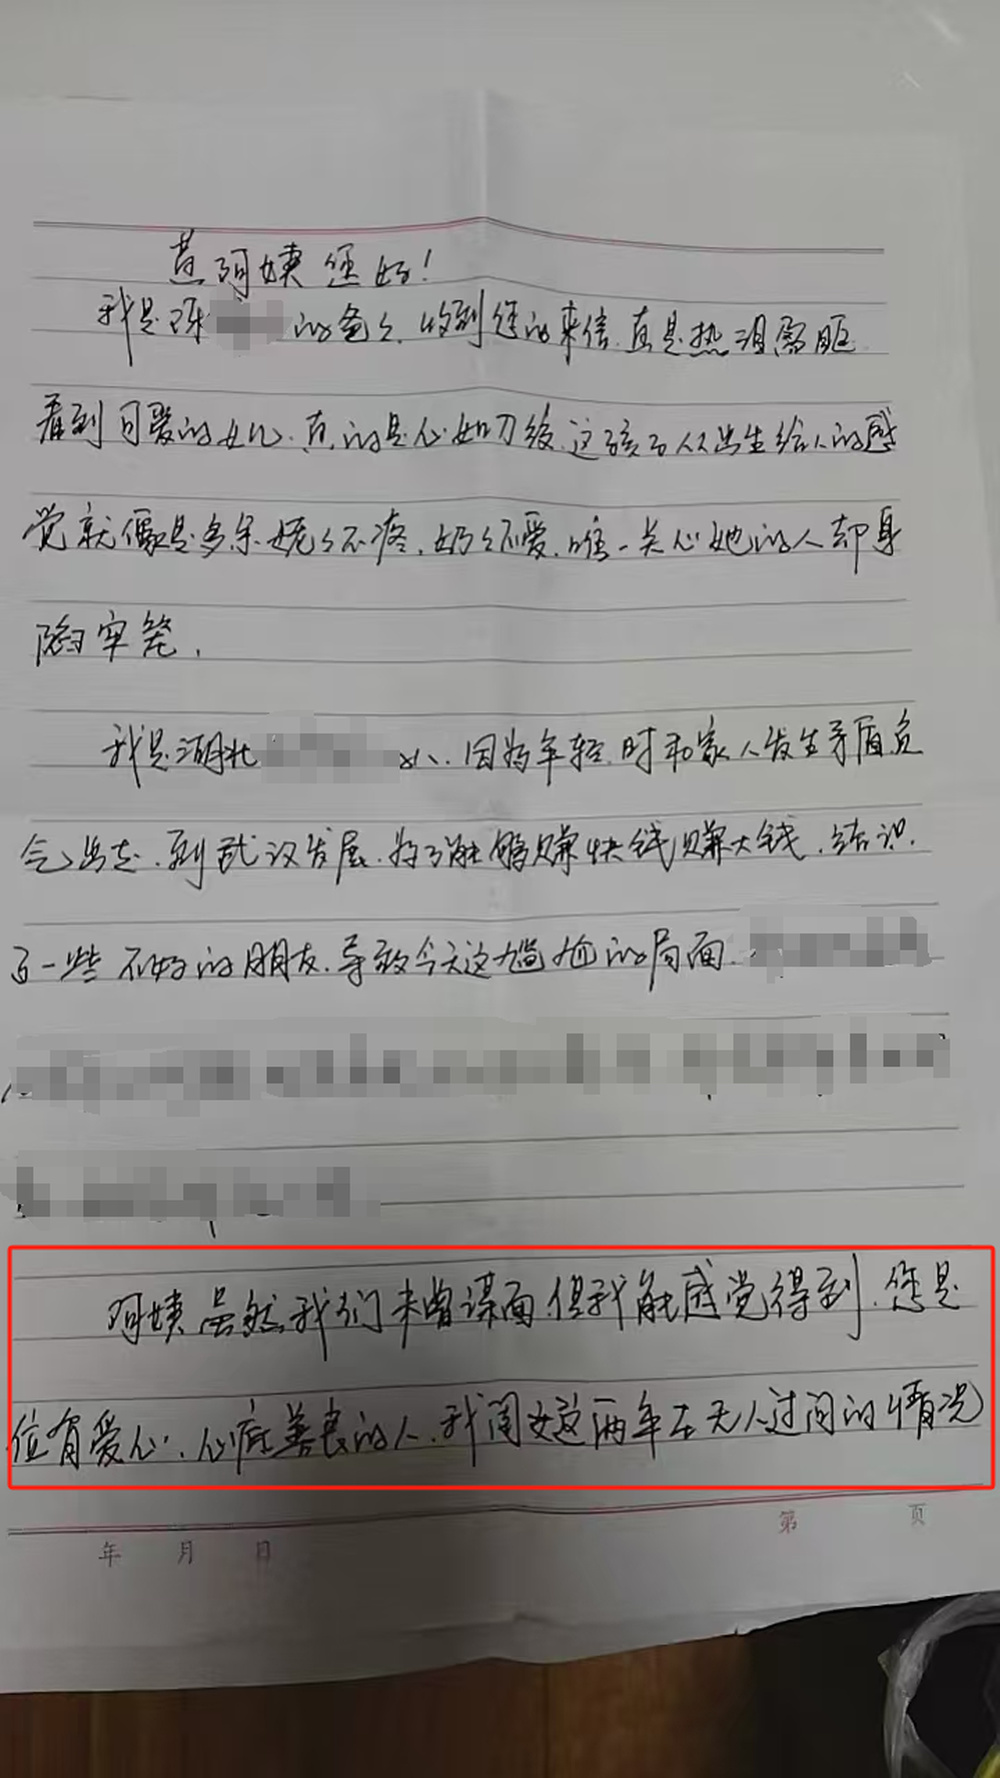 黄阿姨您好！
我是陈 的爸爸.收到您的来信.真是热泪盈眶
看到可爱的女儿.真的是心如刀绞.这孩子从出生给人的感
觉就像是多余.姥姥不疼.奶奶不爱.唯一关心她的人却身
陷牢笼.
我是湖北 人.因为年轻时和家人发生矛盾负
气出走.到武汉发展.为了能够赚快钱赚大钱.结识.
了一些不好的朋友.导致今天这尴尬的局面.
阿姨虽然我们未曾谋面.但我能感觉得到.您是
位有爱心.心底善良的人.我闺女这两年在无人过问的情况
年 月 日
第 页